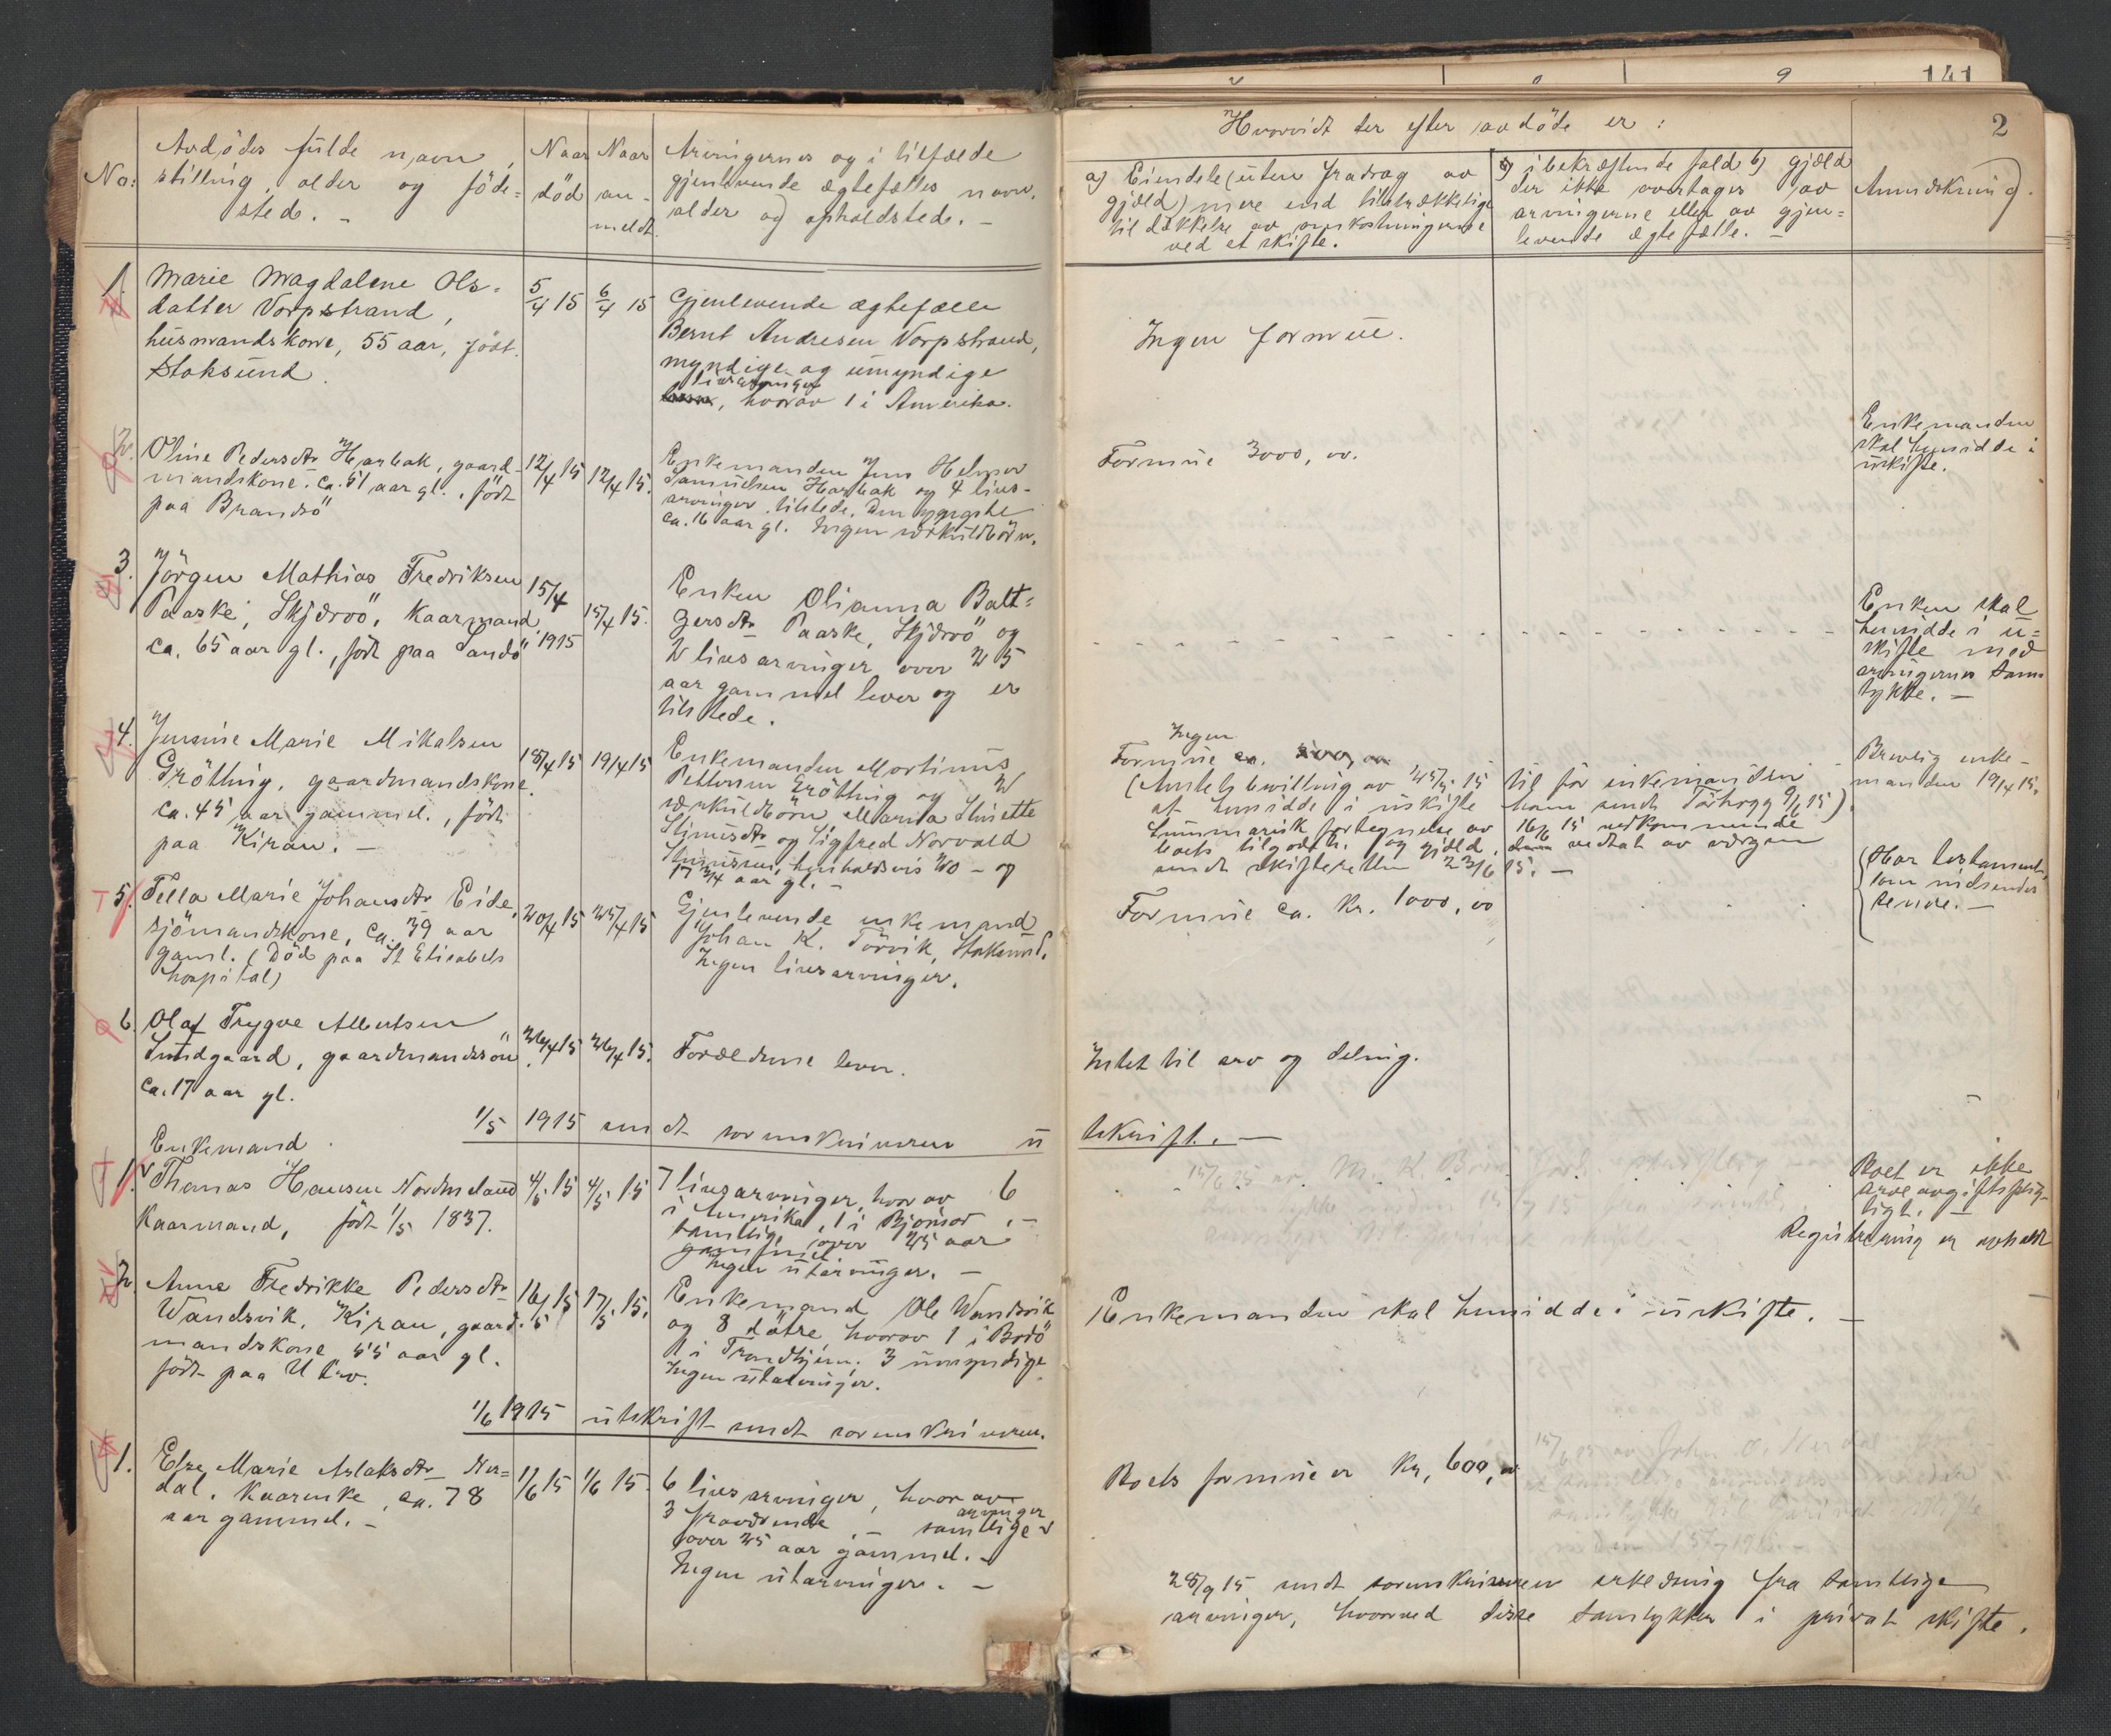 141
2
No:
Avdödes fulde navn,
stilling, alder og föde-
sted. -
Naar
död
Naar
an-
meldt.
Arvingernes og i tilfælde
gjenlevende ægtefælles navn,
alder og opholdsted. -
Hvorvidt der efter avdöde er:
a) Eiendele (uten fradrag av
gjæld) mere end tilstrækkelige
til dækkelse av omkostningerne
ved et skifte.
b) i bekræftende fald b) gjæld
der ikke overtages av
arvingerne eller av gjen-
levende ægtefælle. -
Anmerkning.
1.
Marie Magdalene Ols-
datter Vorpstrand,
husmandskone, 55 aar, födt
Stoksund.
5/4 15
6/4 15
Gjenlevende ægtefælle
Bernt Andresen Vorpstrand,
myndige og umyndige
livsarvinger
, hvorav 1 i Amerika.
Ingen formue.
2.
Oline Pedersdtr Harbak, gaard-
mandskone. ca. 51 aar gl., födt
paa Brandsö
12/4 15
12/4 15.
Enkemanden Jens Helmer
Samuelsen Harbak og 4 livs-
arvinger tilstede. Den yngste
ca. 16 aar gl. Ingen særkuldbörn.
Formue 3000,00.
Enkemanden
skal hensidde i
uskifte.
3.
Jörgen Mathias Fredriksen
Paaske, Skjærvö, Kaarmand
ca. 65 aar gl., födt paa Sandö
15/4
1915
15/4 15.
Enken Olianna Balt-
zersdtr Paaske, Skjærvö og
2 livsarvinger over 25
aar gammel lever og er
tilstede.
Enken skal
hensidde i u-
skifte med
arvingernes sam
tykke. -
4.
Jensine Marie Mikalsen
Grötting, gaardmandskone.
ca. 45 aar gammel., födt
paa Kiran. -
18/4 15
19/4 15
Enkemanden Mortinus
Pettersen Grötting og 2
særkuldbörn Marna Stinette
Stinusdtr og Sigfred Norvald
Stinussen, henholdsvis 20 - og
17 3/4 aar gl. -
Ingen
Formue ca. 500,00
(Amtets bevilling av 25/5 15 til for enkemanden
at hensidde i uskifte ham sendt Törhogg 9/6 15).
Summarisk fortegnelse av 16/6 15 vedkommende
boets tilgodeh. og gjæld, vedtat av værgen
sendt skifteretten 23/6 15. -
Brevlig enke-
manden 19/4 15.
5.
Tella Marie Johansdtr Eide,
sjömandskone, ca. 39 aar
gaml. (Död paa St Elisabets
hospital)
20/4 15
25/4 15
Gjenlevende enkemand
Johan K. Törvik, Stoksund.
Ingen livsarvinger.
Formue ca. Kr. 1000,00
Har testament,
som nedsendes
senere. -
6.
Olaf Trygve Albertsen
Sundgaard, gaardmandssön
ca. 17 aar gl.
26/4 15
26/4 15.
Forældrene lever.
Intet til arv og deling.
1/5 1915 sendt sorenskriveren utskrift. -
1.
Enkemand
Thomas Hansen Nordmeland
Kaarmand, födt 1/5 1837.
4/5 15
4/5 15
7 livsarvinger, hvorav 6
i Amerika, 1 i Bjornör. -
samtlige over 25 aar
gammel
Ingen utarvinger. -
Boet er ikke
arveavgiftsplig-
tigt. -
Registrering er avholdt
2.
Anne Fredrikke Pedersdtr
Wandsvik, Kiran, gaard-
mandskone, 55 aar gl.
födt paa Utro.
16/5 15
17/5 15.
Enkemand Ole Wandsvik
og 8 dötre, hvorav 1 i Bodö
1 i Trondhjem. 3 umyndige
Ingen utarvinger.
Enkemanden skal hensidde i uskifte. -
1/6 1915 utskrift sendt sorenskriveren.
1.
Else Marie Aslaksdtr Ner-
dal. Kaarenke, ca. 78
aar gammel. -
1/6 15
1/6 15.
6 livsarvinger, hvorav
3 fraværende, - samtlige arvinger
over 25 aar gammel. -
Ingen utarvinger. -
Boets formue er Kr. 600,00
28/9 15 sendt sorenskriveren erklæring fra samtlige
arvinger, hvorved disse samtykker i privat skifte.